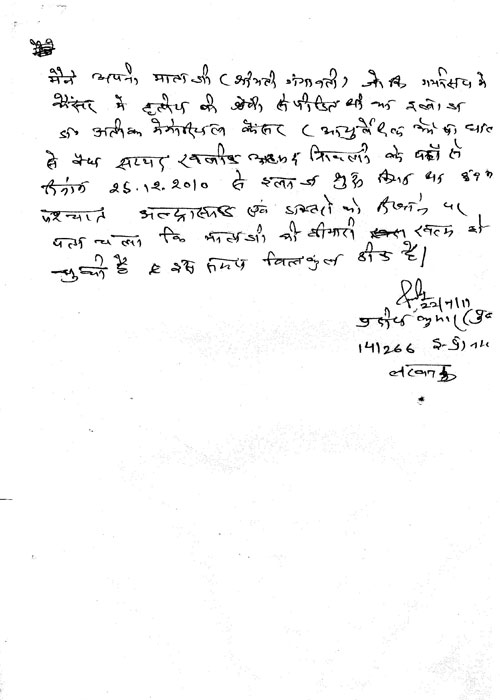 मैंने अपनी माता जी (श्रीमती गंगावती) जो कि गर्भाशय में
कैंसर में तृतीय की श्रेणी से पीडित थी का इलाज
डा० अतीक मेमोरियल कैंसर (आयुर्वेदिक
से वैद्य सय्यद अहमद के यहाँ से
दिनांक 25.12.2010 से इलाज शुरू किया था इसके
पश्चात अल्ट्रासाउंड एवं डाक्टरों को दिखाने पर
पता चला कि माताजी की बीमारी खत्म हो
चुकी है व इस समय बिलकुल ठीक है।
22/7/11
प्रदीप कुमार (पुत्र
14/266 इन्दिरा
लखनऊ